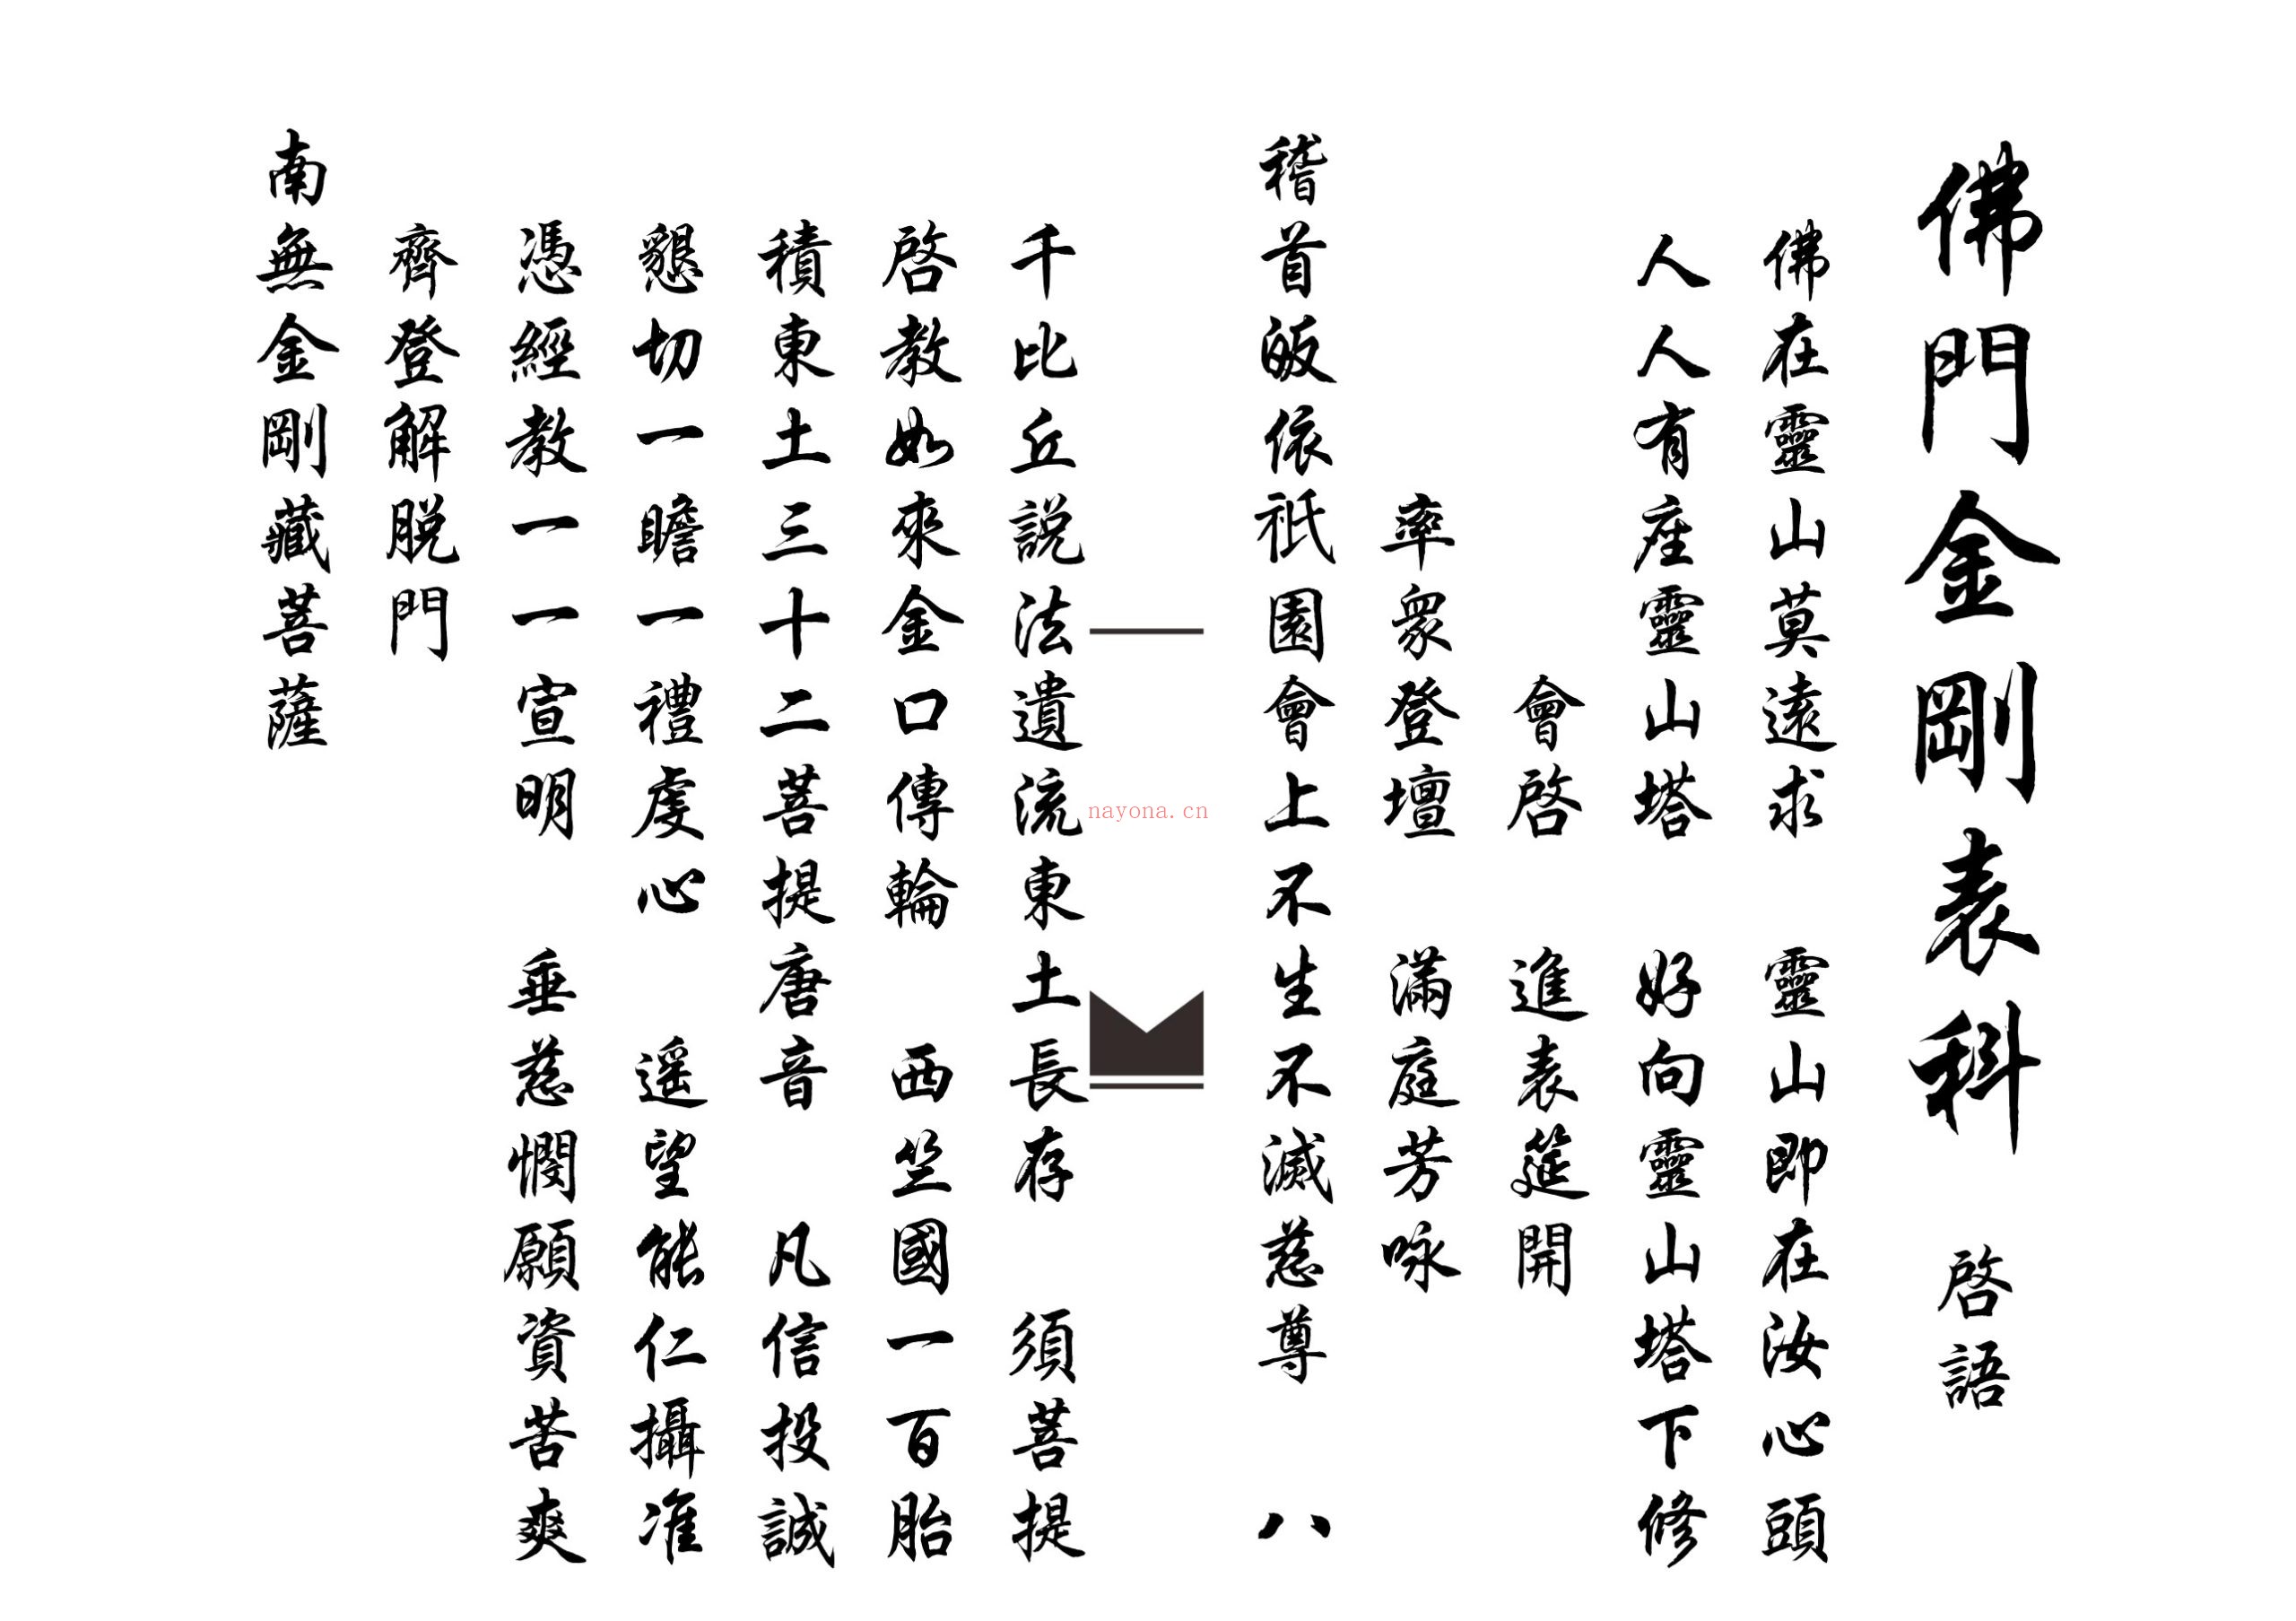 佛門金剛表科 啓語
佛在靈山莫遠求 靈山即在汝心頭
人人有座靈山塔 好向靈山塔下修
會啓 進表筵開
率衆登壇 滿庭芳咏
稽首皈依祇園會上不生不滅慈尊 八
nayona.cn
千比丘説法遺流東土長存 須菩提
啓教如來金口傳輪 西竺國一百胎
積東土三十二菩提唐音 凡信投誠
懇切一瞻一禮虔心 遥望能仁攝准
憑經教一一宣明 垂慈憫願資苦爽
齊登解脱門
南無金剛藏菩薩